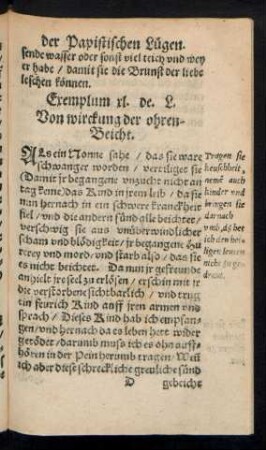 der Papistischen Lügen.
sende wasser oder sonst viel teich vnd wey
er habe / damit sie die Brunst der liebe
leschen können.
Exemplum xl. de. L.
Von wirckung der ohren-
Beicht.
ALs ein Nonne sahe / das sie ware
schwanger worden / vertilget sie
(Damit jr begangene vnzucht nicht an
tag keme) das Kind in jrem lub / da sie
nan hernach in ein schwere kranckheit
fiel / vnd die andern sünd alle beichtet /
verschwig sie aus vnüberwindlicher
scham vnd blödigkeit / jr begangene Hu
rerey vnd mord / vnd starb also / das sie
es nicht beichtet. Da nun jr gefreunde
anhielt jre seel zu erlösen / erschin mit jr
die verstorbene sichtbarlich / vnd trug
ein feurich Kind auff jren armen vnd
sprach / Dieses Kind hab ich empfan-
gen / vnd hernach da es leben hett wider
getödet / darumb muss ich es ohn auff-
hören in der Pein herumb tragen. Weñ
ich aber diese schreckliche greuliche sünd
D gebeicht
Tragen sie
keuschheit,
nemē auch
kinder vnd
bringen sie
darnach
vmb, das
ich den